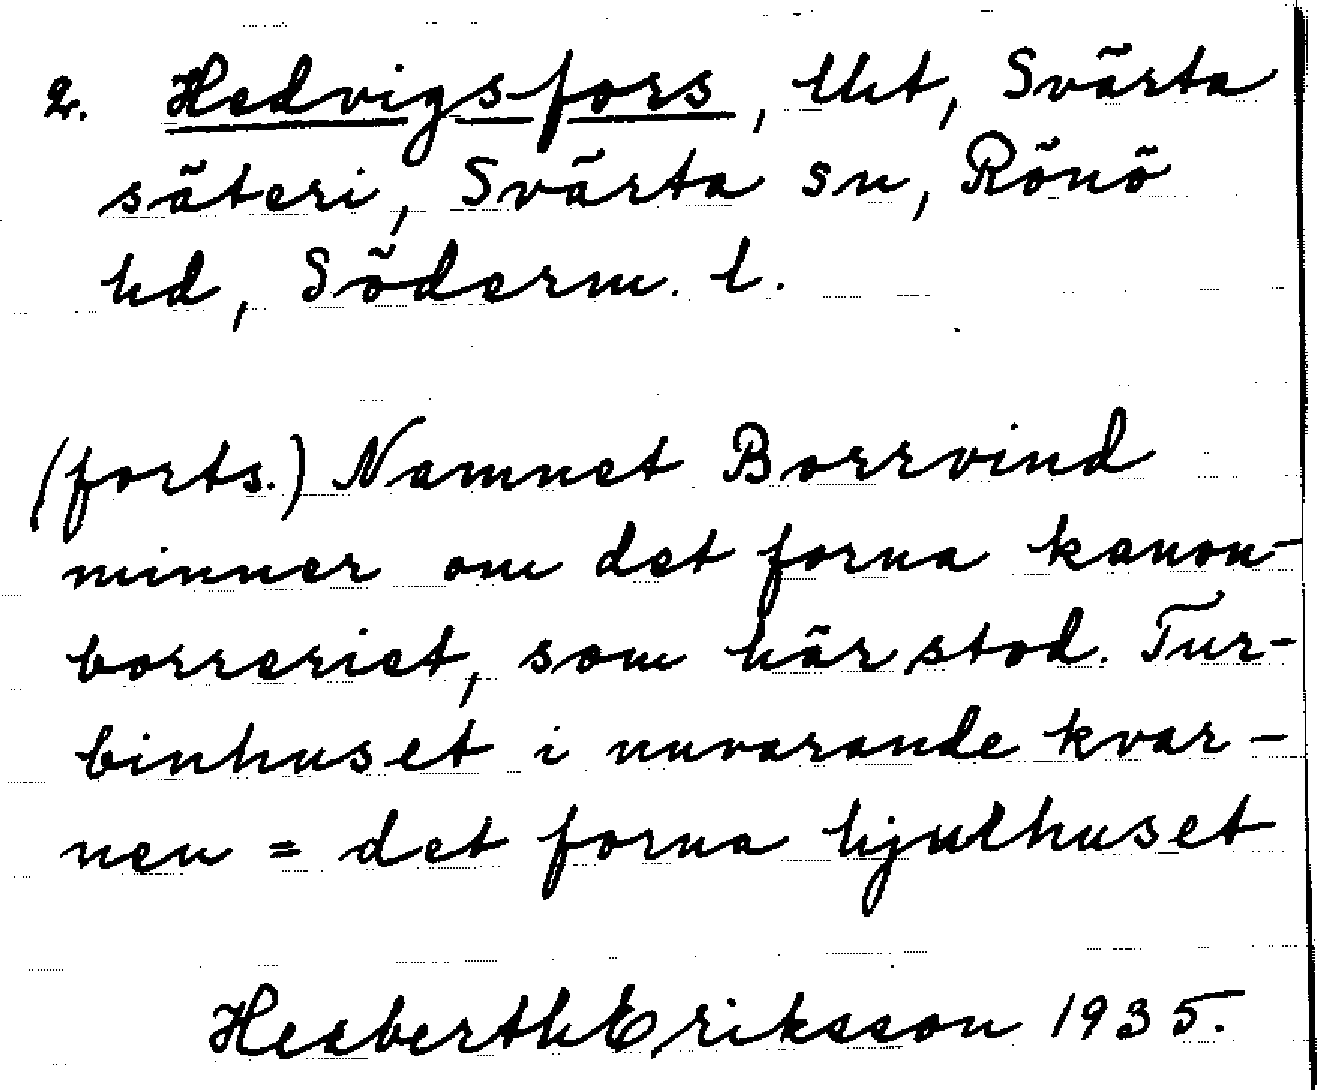 2. Hedvigsfors, lht, Svärta
säteri, Svärta sn, Rönö
hd, Söderm. l.
(forts.) Namnet Borrvind
minner om det forna kanon-
borreriet, som här stod. Tur-
binhuset i nuvarande kvar-
nen = det forna hjulhuset
Herberth Eriksson 1935.